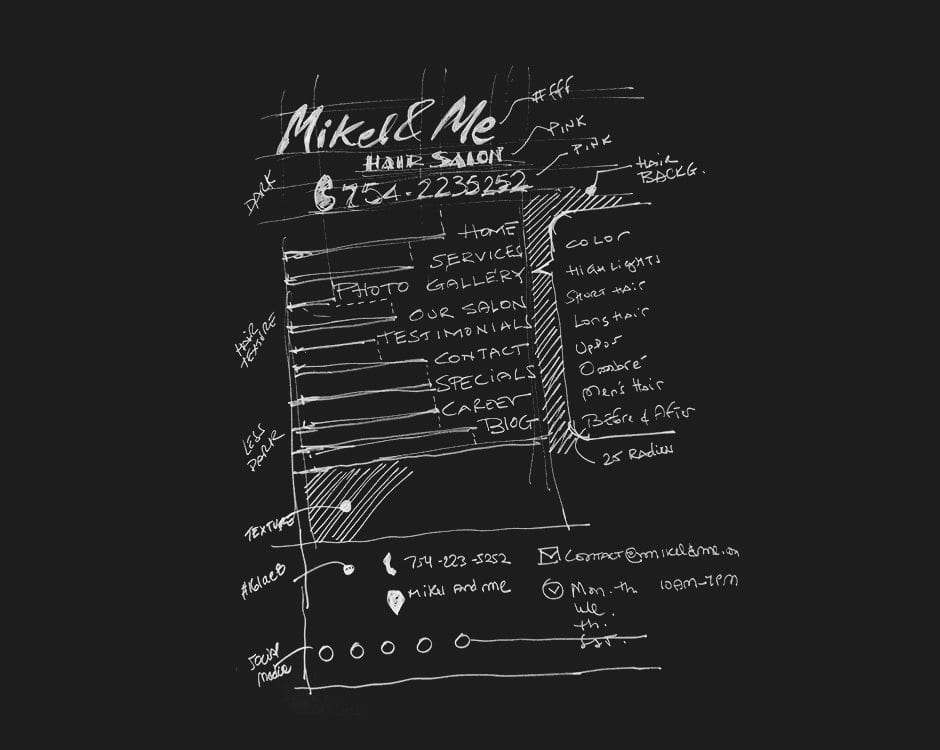 #fff
Mikel & Me
PINK
HAIR SALON
PINK
754-2235252
HAIR
BACKG.
DARK
HOME
SERVICES
PHOTO GALLERY
OUR SALON
TESTIMONIALS
CONTACT
SPECIALS
CAREER
BLOG
COLOR
HIGHLIGHTS
SHORT HAIR
Long HAIR
Updos
Ombré
Men's Hair
Before & After
25 RADIUS
HAIR
TEXTURE
LESS
DARK
TEXTURE
754-223-5252
MIKEL AND ME
Mon. th 10AM-7PM
We
th.
Sat.
Social
media